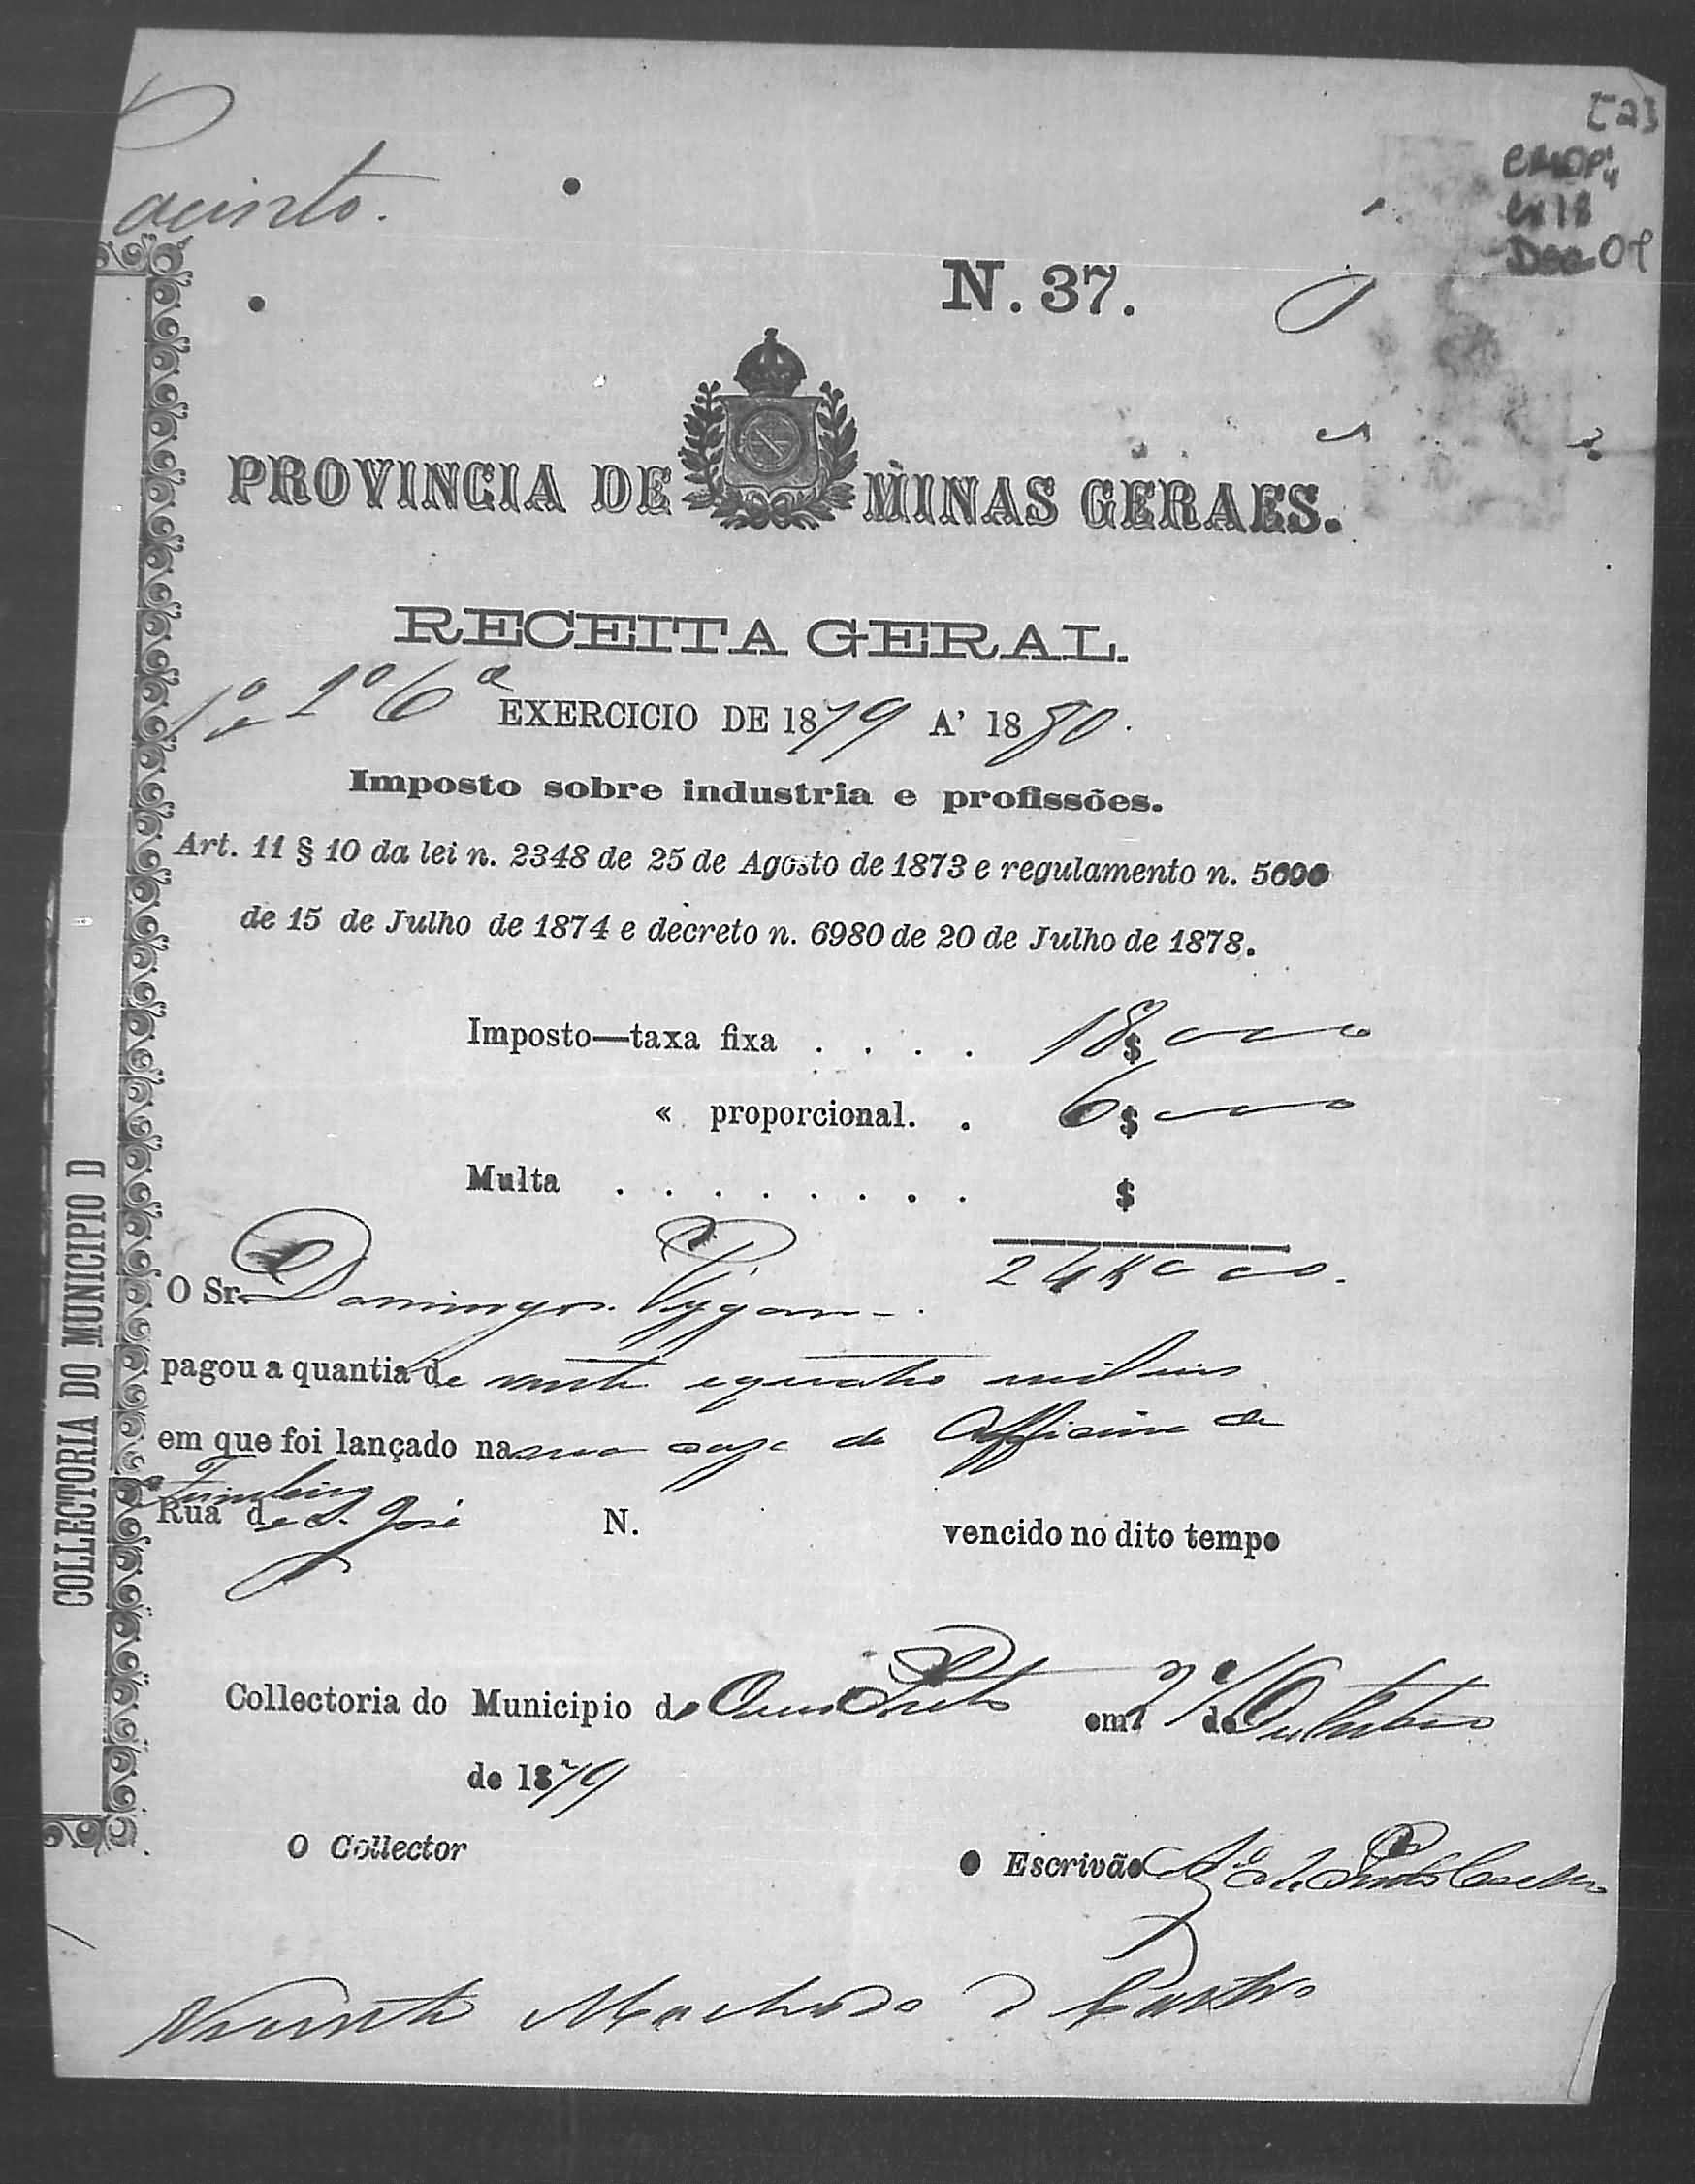 acinto.
N. 37.
PROVINCIA DE MINAS GERAES.
RECEITA GERAL.
EXERCICIO DE 1879 A' 1880.
Imposto sobre industria e profissões.
Art. 11 § 10 da lei n. 2348 de 25 de Agosto de 1873 e regulamento n. 5690
de 15 de Julho de 1874 e decreto n. 6980 de 20 de Julho de 1878.
Imposto—taxa fixa . . . . 18$000
« proporcional. . 6$000
Multa . . . . . . . . $
24$000.
O Sr. Domingos
pagou a quantia de vinte e quatro mil reis
em que foi lançado na sua caza de Officina de
Funileiro
Rua de S. José N. vencido no dito tempo
Collectoria do Municipio de Ouro Preto em de Outubro
de 1879
O Collector
O Escrivão
Vicente Machado de Castro
COLLECTORIA DO MUNICIPIO D